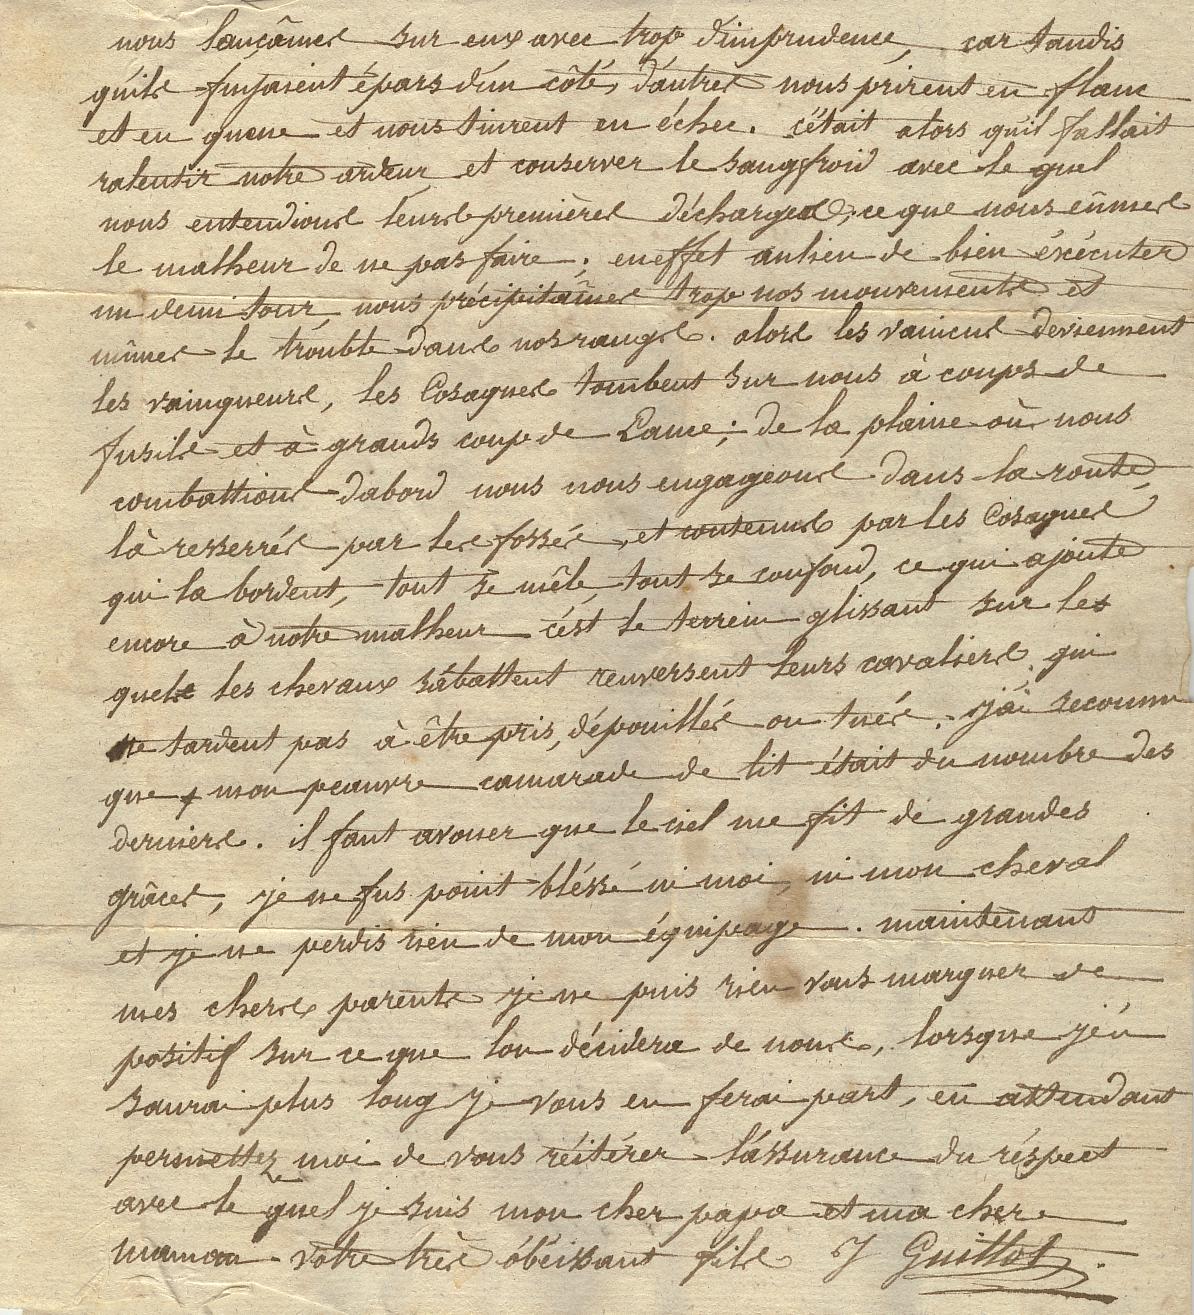 nous lançâmes sur eux avec trop d'imprudence, car tandis
qu'ils fuyaient épars d'un côté, d'autres nous prirent en flanc
et en queue et nous tinrent en échec. c'était alors qu'il fallait
ralentir notre ardeur et conserver le sangfroid avec le quel
nous entendions leurs premières décharges, ce que nous eûmes
le malheur de ne pas faire; en effet aulieu de bien éxécuter
un demi tour, nous précipitâmes trop nos mouvements et
mîmes le trouble dans nos rangs. alors les vaincus deviennent
les vainqueurs, les Cosaques tombent sur nous à coups de
fusils et à grands coups de Lance; de la plaine où nous
combattions dabord nous nous engageons dans la route,
là resserrés par les fossés, et contenus par les Cosaques
qui la bordent, tout se mêle, tout se confond, ce qui ajoute
encore à notre malheur c'ést le terrein glissant sur les
quels les chevaux s'abattent renversent leurs cavaliers, qui
ne tardent pas à être pris, dépouillés ou tués. j'ai reconnu
que mon peauvre camarade de lit était du nombre des
derniers. il faut avouer que le ciel me fit de grandes
grâces, je ne fus point bléssé ni moi, ni mon cheval
et je ne perdis rien de mon équipage. maintenant
mes chers parents je ne puis rien vous marquer de
positif sur ce que lon décidera de nous, lorsque j'én
saurai plus long je vous en ferai part, en attendant
permettez moi de vous réitérer l'assurance du réspect
avec le quel je suis mon cher papa et ma chere
maman votre très obéissant fils J Guillot.